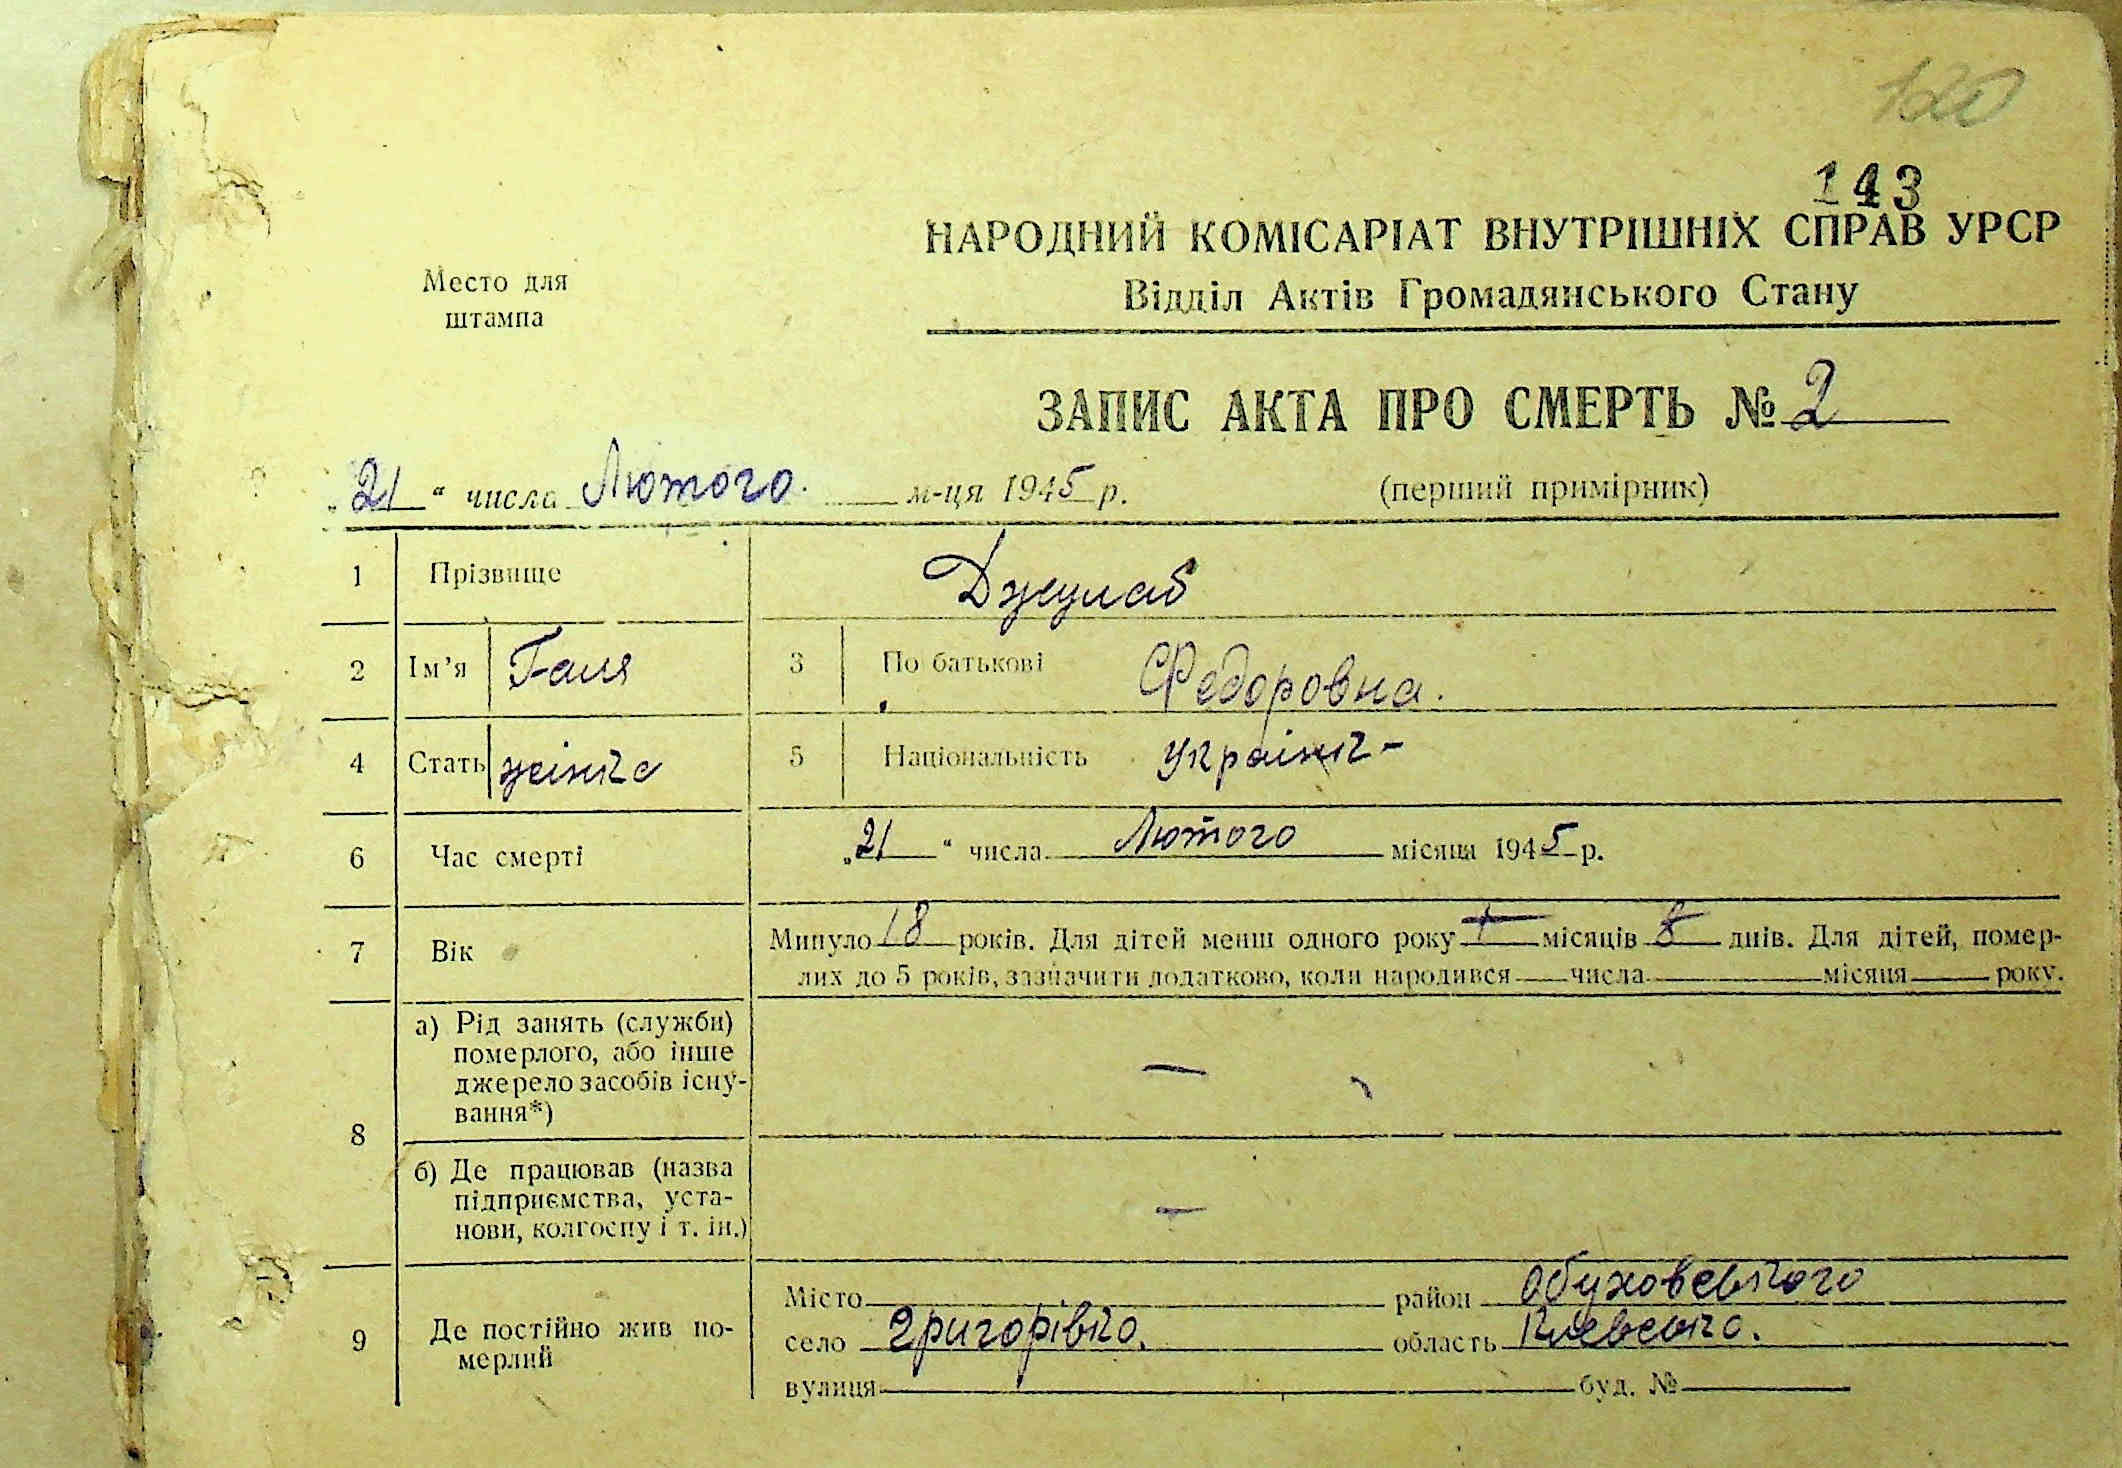 120
143
НАРОДНИЙ КОМІСАРІАТ ВНУТРІШНІХ СПРАВ УРСР
Відділ Актів Громадянського Стану
Место для
штампа
ЗАПИС АКТА ПРО СМЕРТЬ № 2
„21“ числа Лютого м-ця 1945 р. (перший примірник)
1 Прізвище Джулай
2 Ім’я Галя 3 По батькові Федоровна.
4 Стать жінка 5 Національність
6 Час смерті „21“ числа Лютого місяця 1945 р.
7 Вік Минуло 18 років. Для дітей менш одного року місяців 8 днів. Для дітей, помер-
лих до 5 років, зазначити додатково, коли народився числа місяця року.
8 а) Рід занять (служби)
померлого, або інше
джерело засобів існу-
вання*) —
б) Де працював (назва
підприємства, уста-
нови, колгоспу і т. ін.) —
9 Де постійно жив по-
мерлий
Місто район Обуховського
село Григорівка. область Киевська.
вулиця буд. №